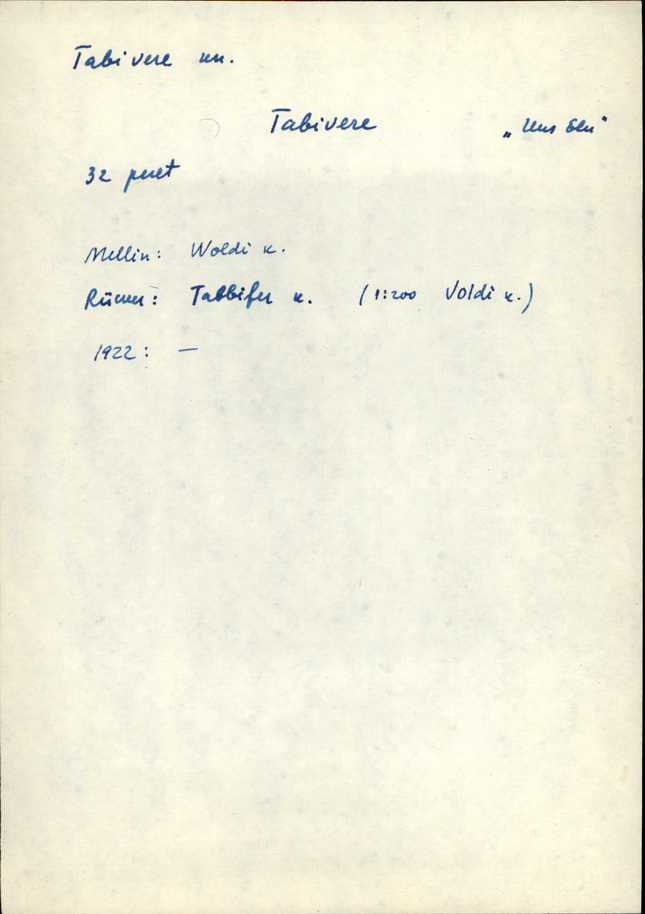 Tabivere kn.
Tabivere „Uus Elu"
32 peret
Mellin: Woldi k.
Rücker: Tabbifer k. (1:200 Voldi k.)
1922: —